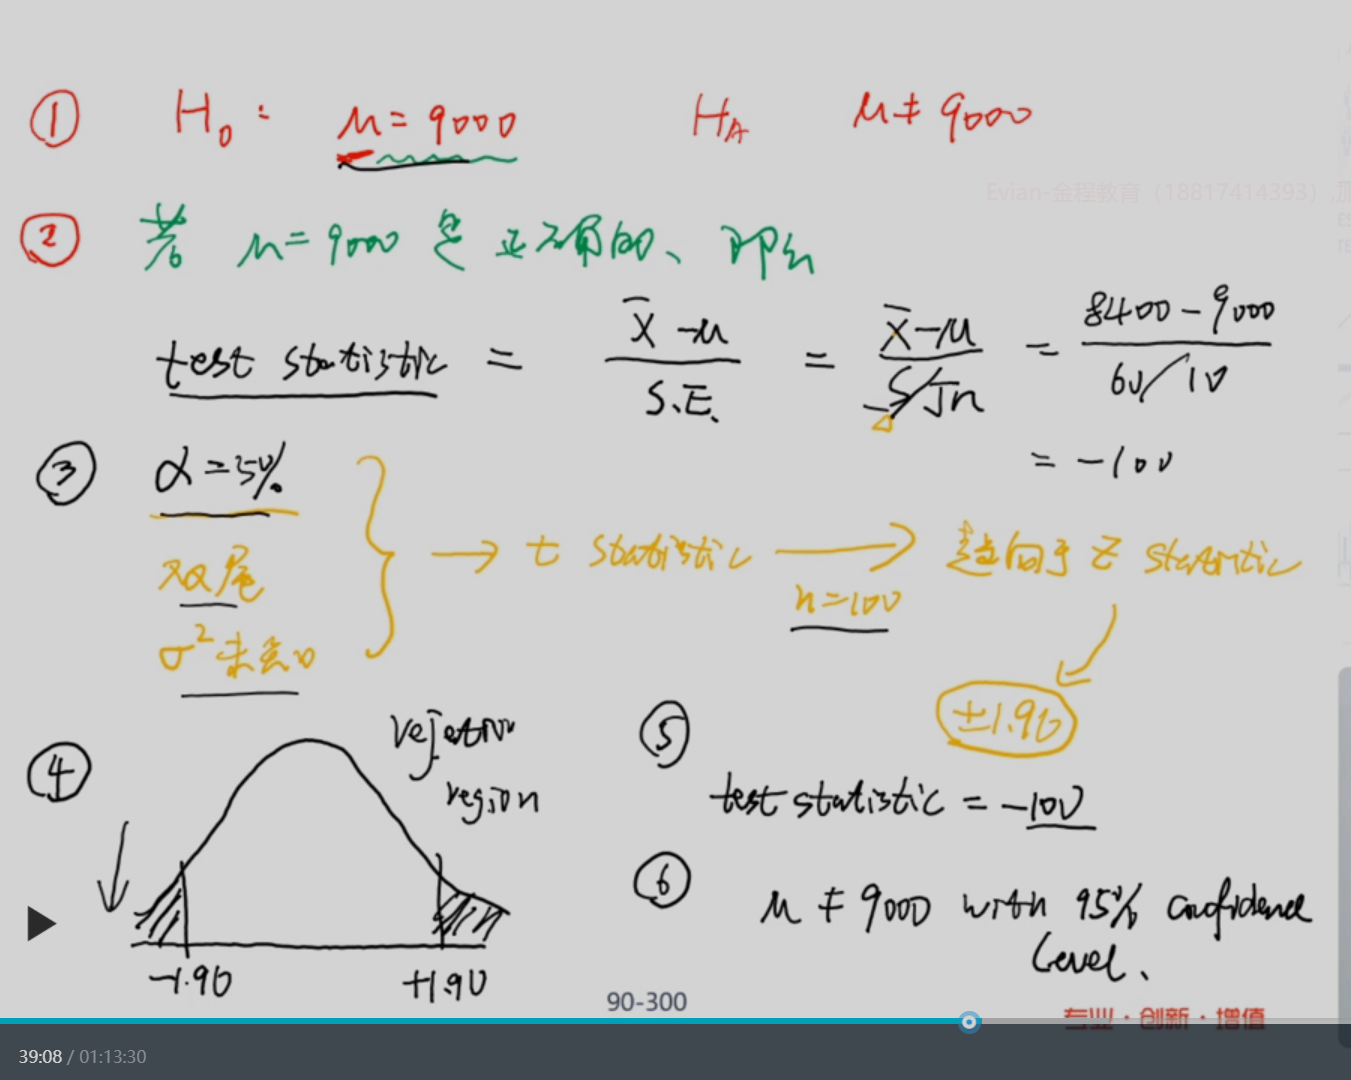 ① H₀: μ = 9000 H_A μ ≠ 9000
Evian-金程教育（18817414393）,
② 若 μ = 9000 是正确的、即么
test statistic = (X̄ - μ) / S.E. = (X̄ - μ) / (S/√n) = (8400 - 9000) / (60/10)
= -100
③ α = 5%
双尾
σ² 未知
→ t statistic → 趋向于 z statistic
n = 100
±1.96
④ rejection region
-1.96 +1.96
⑤
test statistic = -100
⑥
μ ≠ 9000 with 95% confidence
level.
90-300
专业·创新·增值
39:08 / 01:13:30